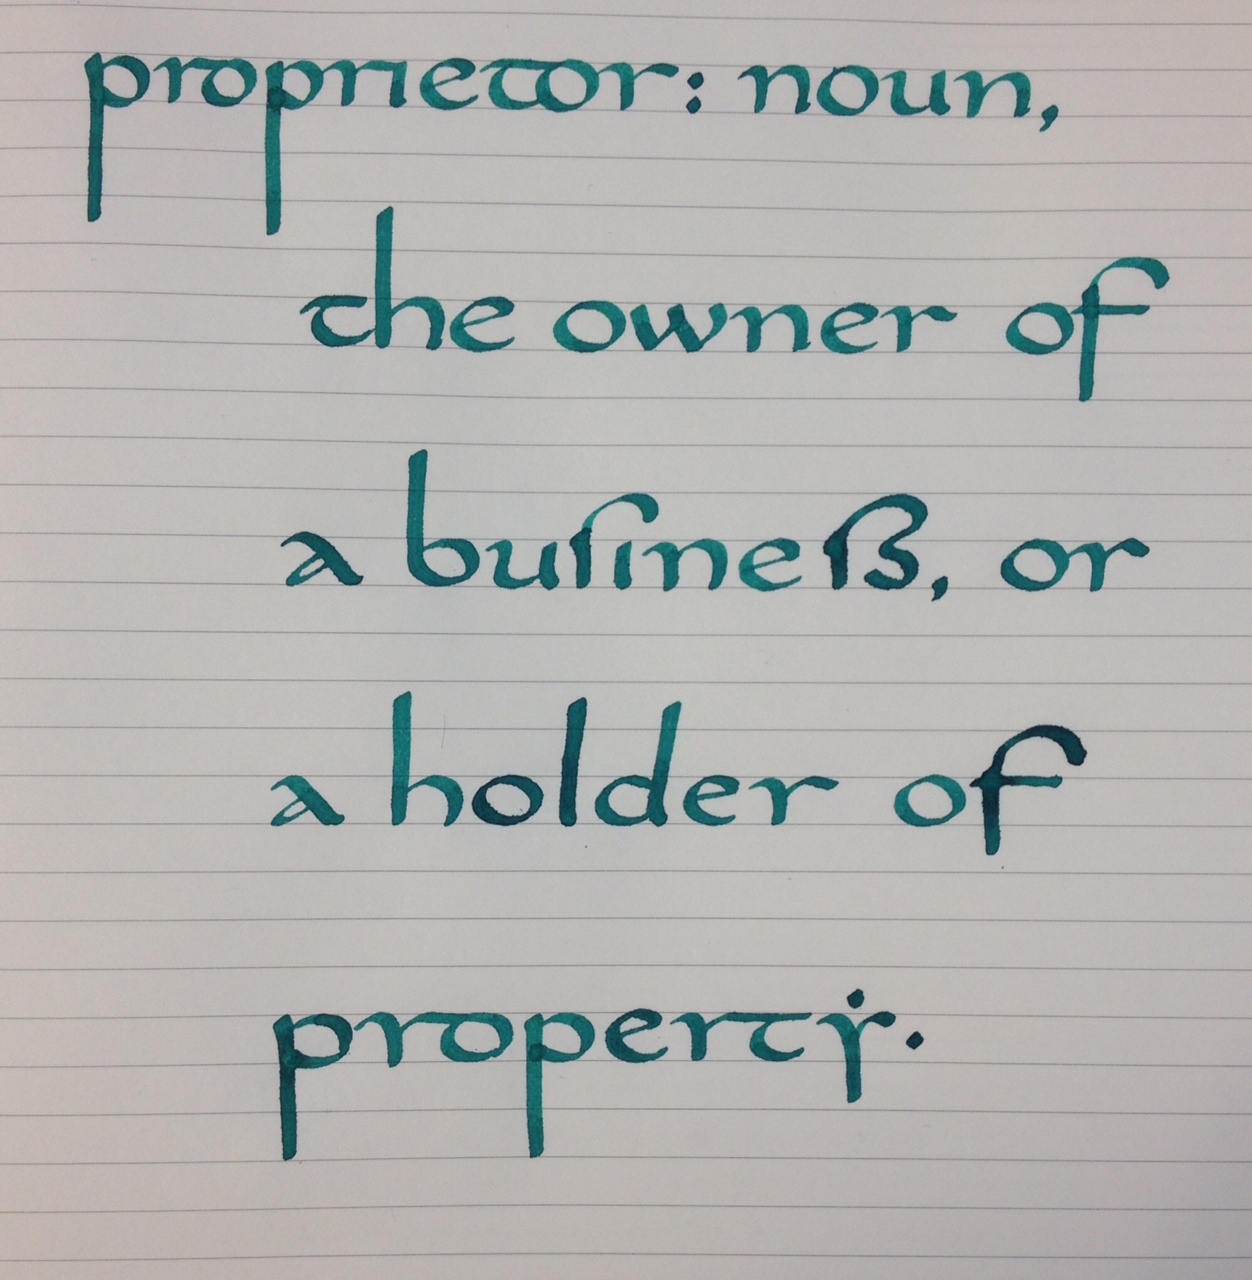 proprietor: noun,
the owner of
a buſineß, or
a holder of
property.